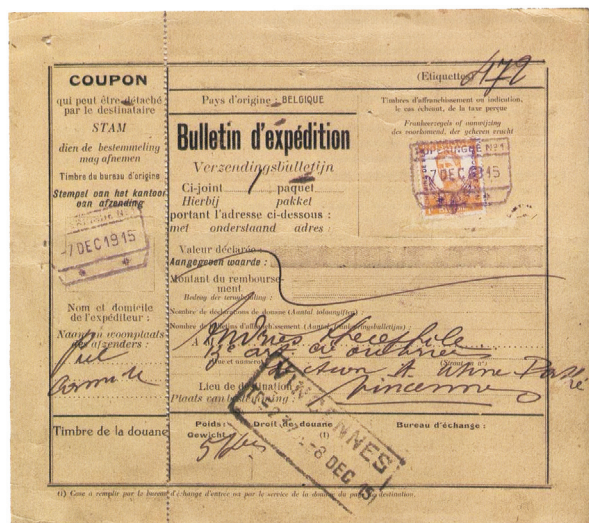 472
COUPON
qui peut être détaché
par le destinataire
STAM
dien de bestemmeling
mag afnemen
Timbre du bureau d'origine
Stempel van het kantoor
van afzending
-7 DEC 1915
Nom et domicile
de l'expéditeur :
Naam en woonplaats
des afzenders :
Timbre de la douane
(Etiquettes)
Pays d'origine : BELGIQUE
Bulletin d'expédition
Verzendingsbulletijn
Ci-joint 1 paquet
Hierbij pakket
portant l'adresse ci-dessous :
met onderstaand adres :
Timbres d'affranchissement ou indication,
le cas échéant, de la taxe perçue
Frankeerzegels of aanwijzing
des voorkomend, der geheven vracht
N°1
-7 DEC 1915
Valeur déclarée :
Aangegeven waarde :
Montant du rembourse-
ment
Nombre de déclarations de douane (Aantal tolaangiften) :
Nombre de bulletins d'affranchissement.
Lieu de destination
Plaats van bestemming :
Vincennes
VINCENNES
-8 DEC 15
Poids :
Gewicht :
Droit de douane
(1)
Bureau d'échange :
(1) Case à remplir par le bureau d'échange d'entrée ou par le service de la douane du pays de destination.